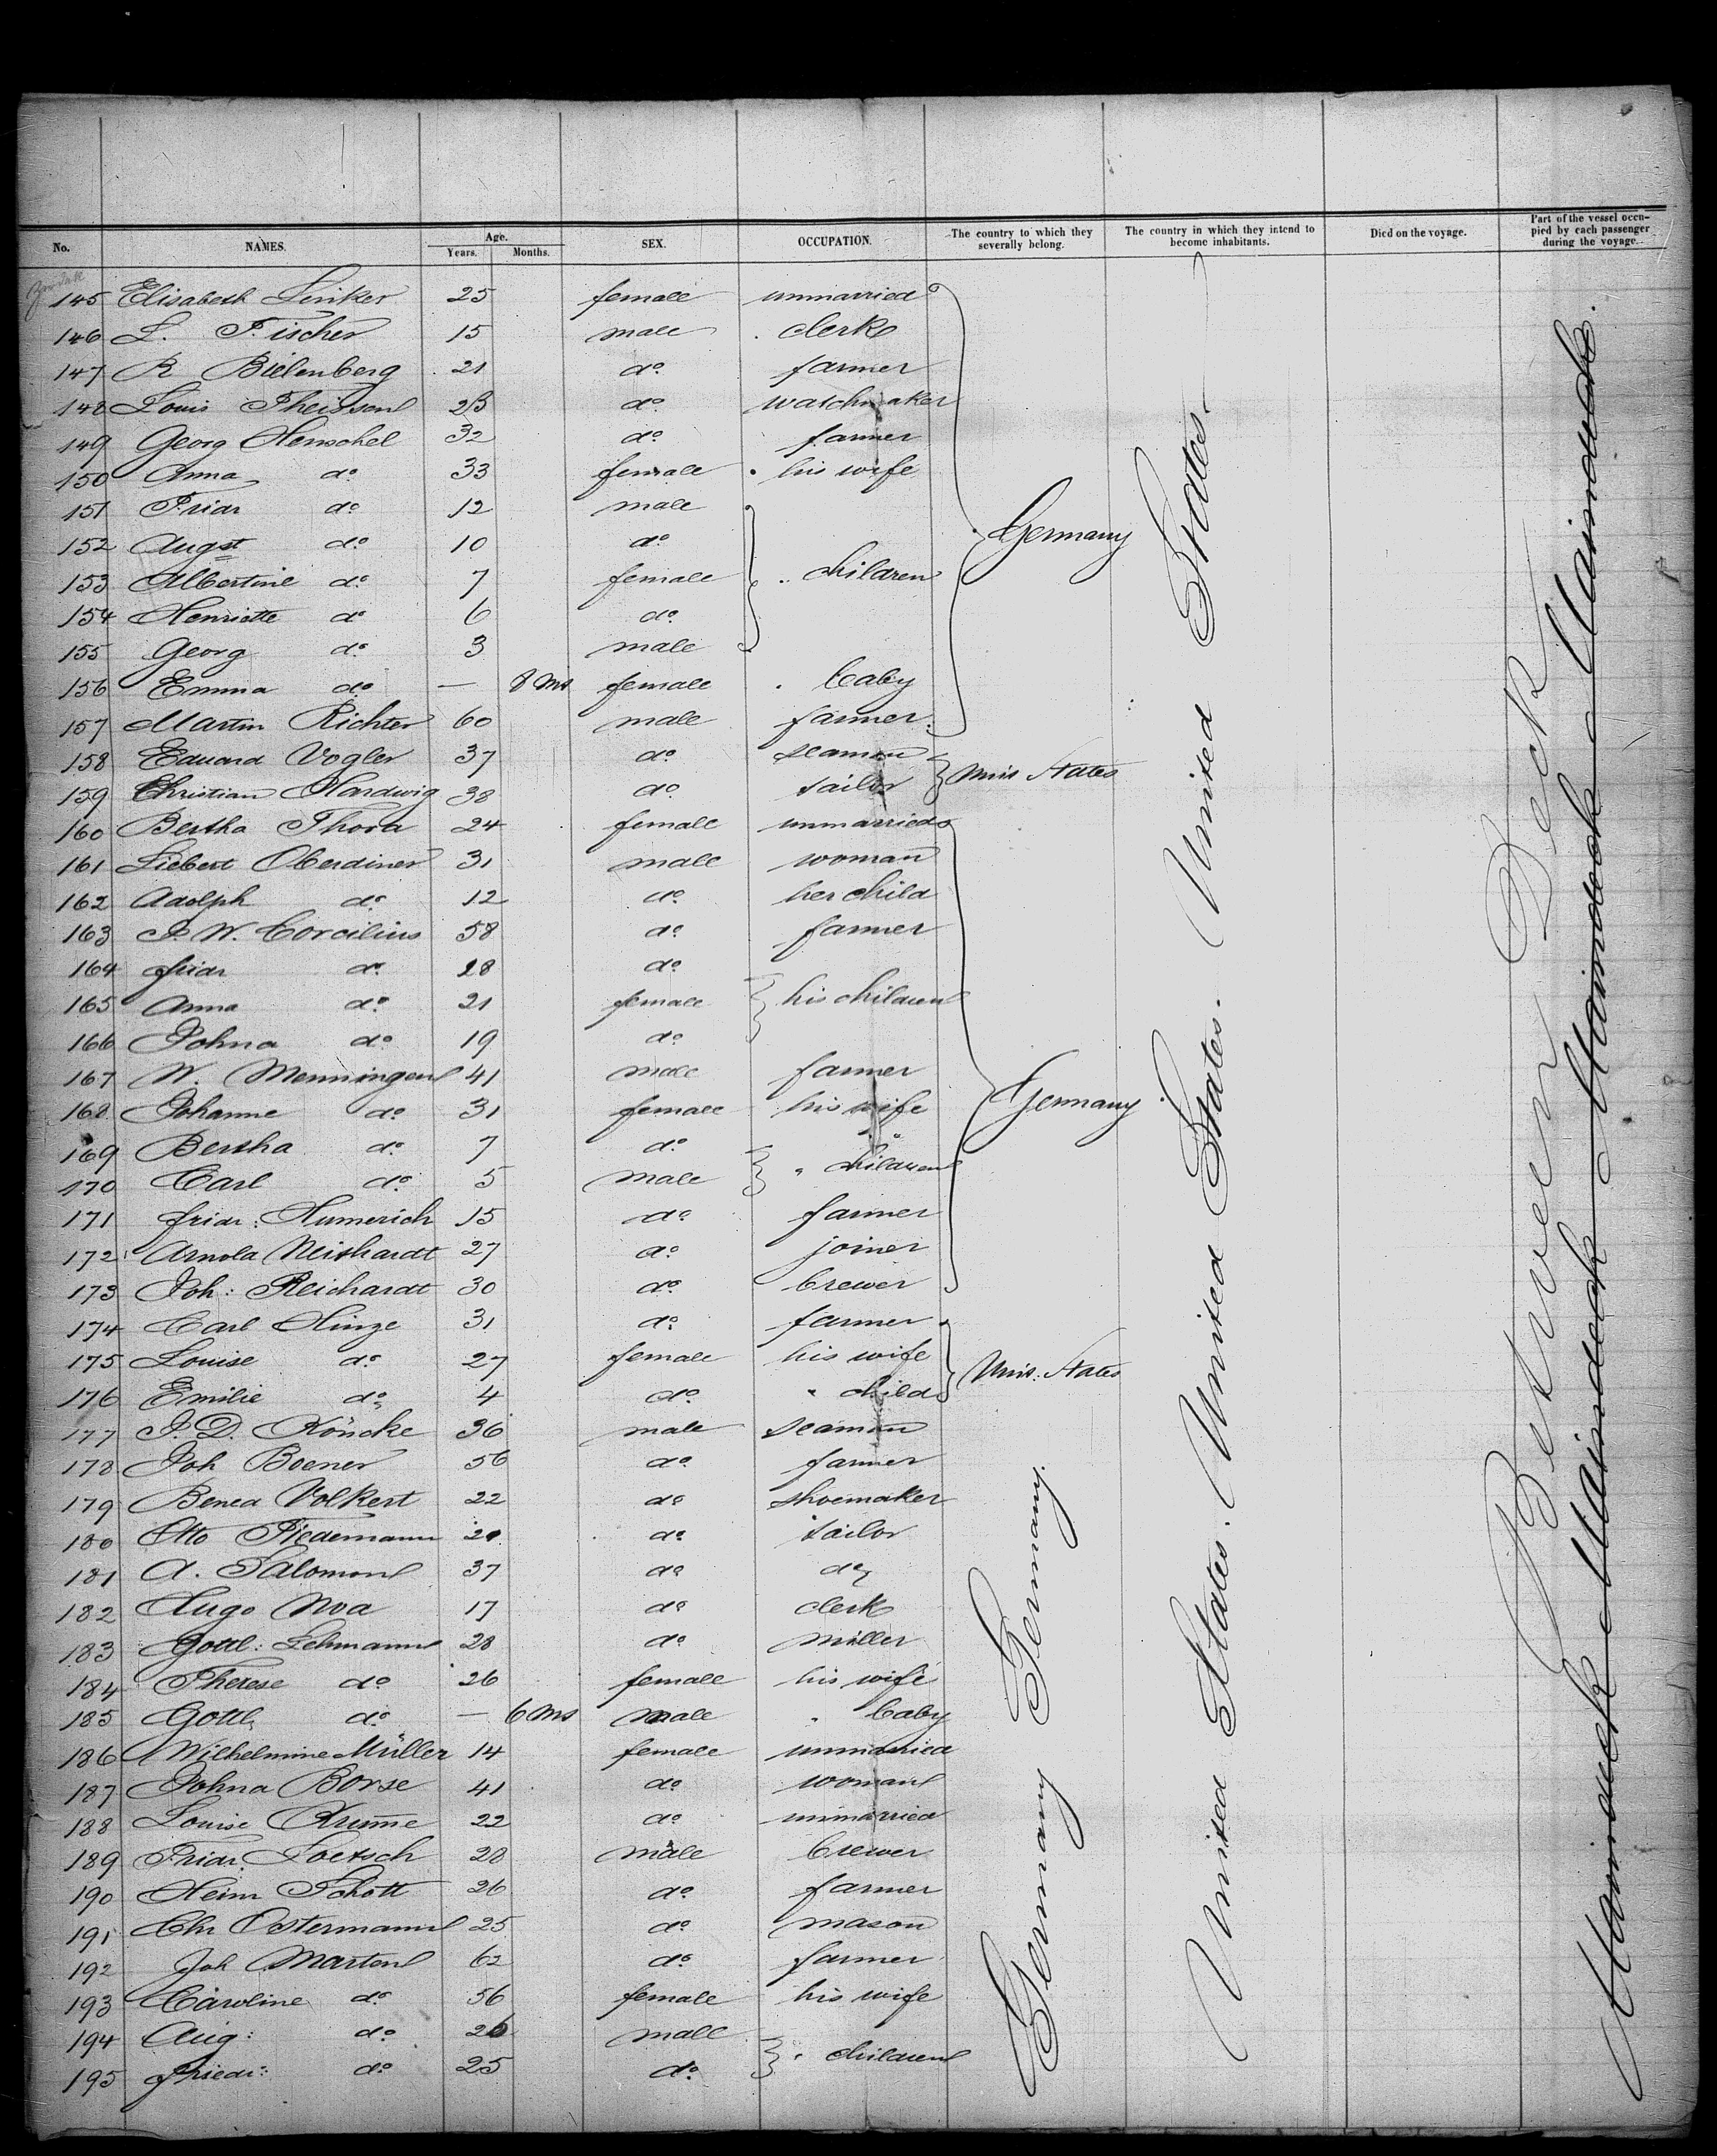 No. NAMES. Age. Years. Months. SEX. OCCUPATION. The country to which they severally belong. The country in which they intend to become inhabitants. Died on the voyage. Part of the vessel occupied by each passenger during the voyage.
145 Elisabeth Linker 25 female unmarried
146 L. Fischer 15 male clerk
147 R Bielenberg 21 do farmer
148 Louis Theissen 23 do watchmaker
149 Georg Henschel 32 do farmer
150 Anna do 33 female his wife
151 Fridr do 12 male
152 Augst do 10 do
153 Albertine do 7 female " children Germany
154 Henriette do 6 do
155 Georg do 3 male
156 Emma do — 8 Ms female baby
157 Martin Richter 60 male farmer
158 Eduard Vogler 37 do seaman
159 Christian Hardwig 38 do tailor Unit States
160 Bertha Thora 24 female unmarried
161 Liebert Oberdiner 31 male woman
162 Adolph do 12 do her child
163 J. W. Corcilius 58 do farmer
164 Fridr do 28 do
165 Anna do 21 female his children
166 Johna do 19 do
167 W. Menningen 41 male farmer
168 Johanne do 31 female his wife Germany
169 Bertha do 7 do
170 Carl do 5 male " children
171 Fridr: Humerich 15 do farmer
172 Arnold Neithardt 27 do joiner
173 Joh: Reichardt 30 do brewer
174 Carl Hinze 31 do farmer
175 Louise do 27 female his wife Unit. States
176 Emilie do 4 do " child
177 J. D. Köncke 36 male seaman
178 Joh Boener 56 do farmer
179 Bened Volkert 22 do shoemaker
180 Otto Tiedemann do tailor
181 A. Salomon 37 do do
182 Hugo Noa 17 do clerk
183 Gottl: Lehmann 28 do miller
184 Therese do 26 female his wife
185 Gottl. do — 6 Ms male " baby
186 Wilhelmine Müller 14 female unmarried
187 Johna Borse 41 do woman
188 Louise Krum̅e 22 do unmarried
189 Fridr. Loetsch 28 male brewer
190 Heinr Schott 26 do farmer
191 Chr Ostermann 25 do mason
192 Joh Marten 62 do farmer
193 Caroline do 56 female his wife
194 Aug: do 26 male
195 Friedr: do 25 do " children
Germany Germany.
United States. United States. United States.
Between Deck